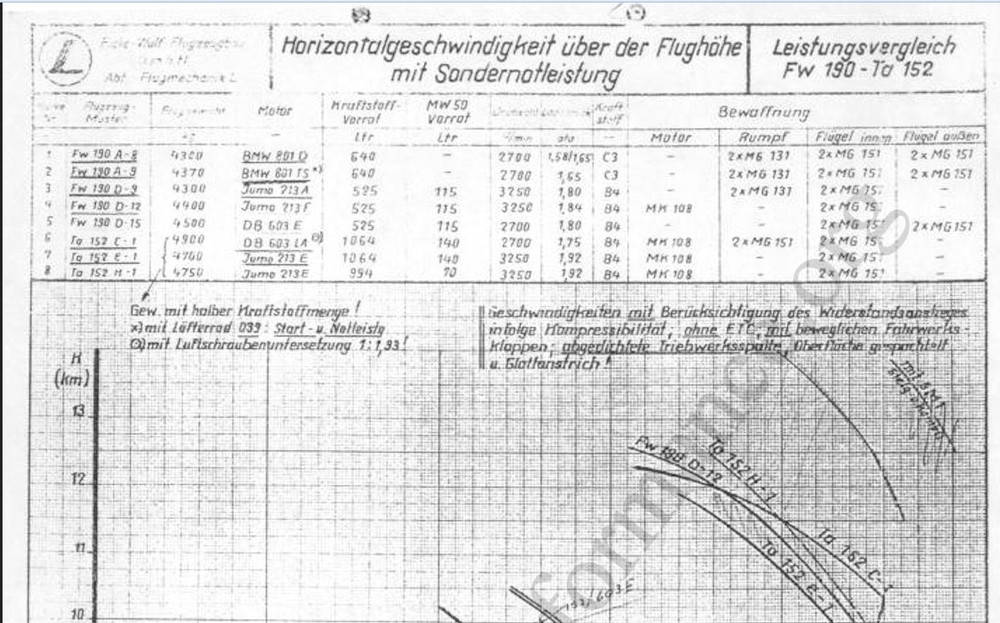 Focke-Wulf Flugzeugbau
G.m.b.H.
Abt. Flugmechanik L
Horizontalgeschwindigkeit über der Flughöhe
mit Sondernotleistung
Leistungsvergleich
Fw 190 - Ta 152
Flugzeug-Muster Fluggewicht Motor Kraftstoff-Vorrat MW 50 Vorrat Kraftstoff Bewaffnung
kg - Ltr Ltr U/min ata - Motor Rumpf Flügel innen Flügel außen
1 Fw 190 A-8 4300 BMW 801 D 640 - 2700 1,58/1,65 C3 - 2xMG 131 2xMG 151 2xMG 151
2 Fw 190 A-9 4370 BMW 801 TS *) 640 - 2700 1,65 C3 - 2xMG 131 2xMG 151 2xMG 151
3 Fw 190 D-9 4300 Jumo 213 A 525 115 3250 1,80 B4 - 2xMG 131 2xMG 151 -
4 Fw 190 D-12 4400 Jumo 213 F 525 115 3250 1,84 B4 MK 108 - 2xMG 151 -
5 Fw 190 D-15 4500 DB 603 E 525 115 2700 1,80 B4 - - 2xMG 151 2xMG 151
6 Ta 152 C-1 4900 DB 603 LA 1064 140 2700 1,75 B4 MK 108 2xMG 151 2xMG 151 -
7 Ta 152 E-1 4700 Jumo 213 E 1064 140 3250 1,92 B4 MK 108 - 2xMG 151 -
8 Ta 152 H-1 4750 Jumo 213E 994 70 3250 1,92 B4 MK 108 - 2xMG 151 -
Gew. mit halber Kraftstoffmenge!
x) mit Lüfterrad 039: Start- u. Notleistg
mit Luftschraubenuntersetzung 1:1,93!
Geschwindigkeiten mit Berücksichtigung des Widerstandsanstieges
infolge Kompressibilität; ohne ETC, mit beweglichen Fahrwerks-
klappen; abgedichtete Triebwerksspalte, Oberfläche gespachtelt
u. Glattanstrich!
H
(km)
13
12
11
10
Fw 190 D-12
Ta 152 H-1
Ta 152 C-1
Ta 152 E-1
153/603E